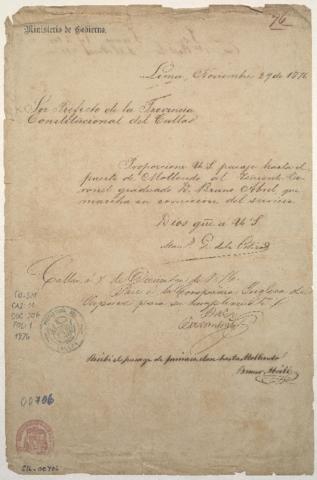 76
Ministerio de Gobierno.
Lima, Noviembre 29 de 1876
Sor Prefecto de la Provincia
Constitucional del Callao
Proporcione U S. pasaje hasta el
puerto de Mollendo al Teniente Co-
ronel graduado D. Bruno Abril que
marcha en comision del servicio
Dios gue. a U S.
Callao á de Diciembre de 
Pase á la Compañia Inglesa de
Vapores para su cumplimiento
Recibi el pasaje de primera clase hasta Mollendo
Bruno Abril
FOL: 1
1876
00706